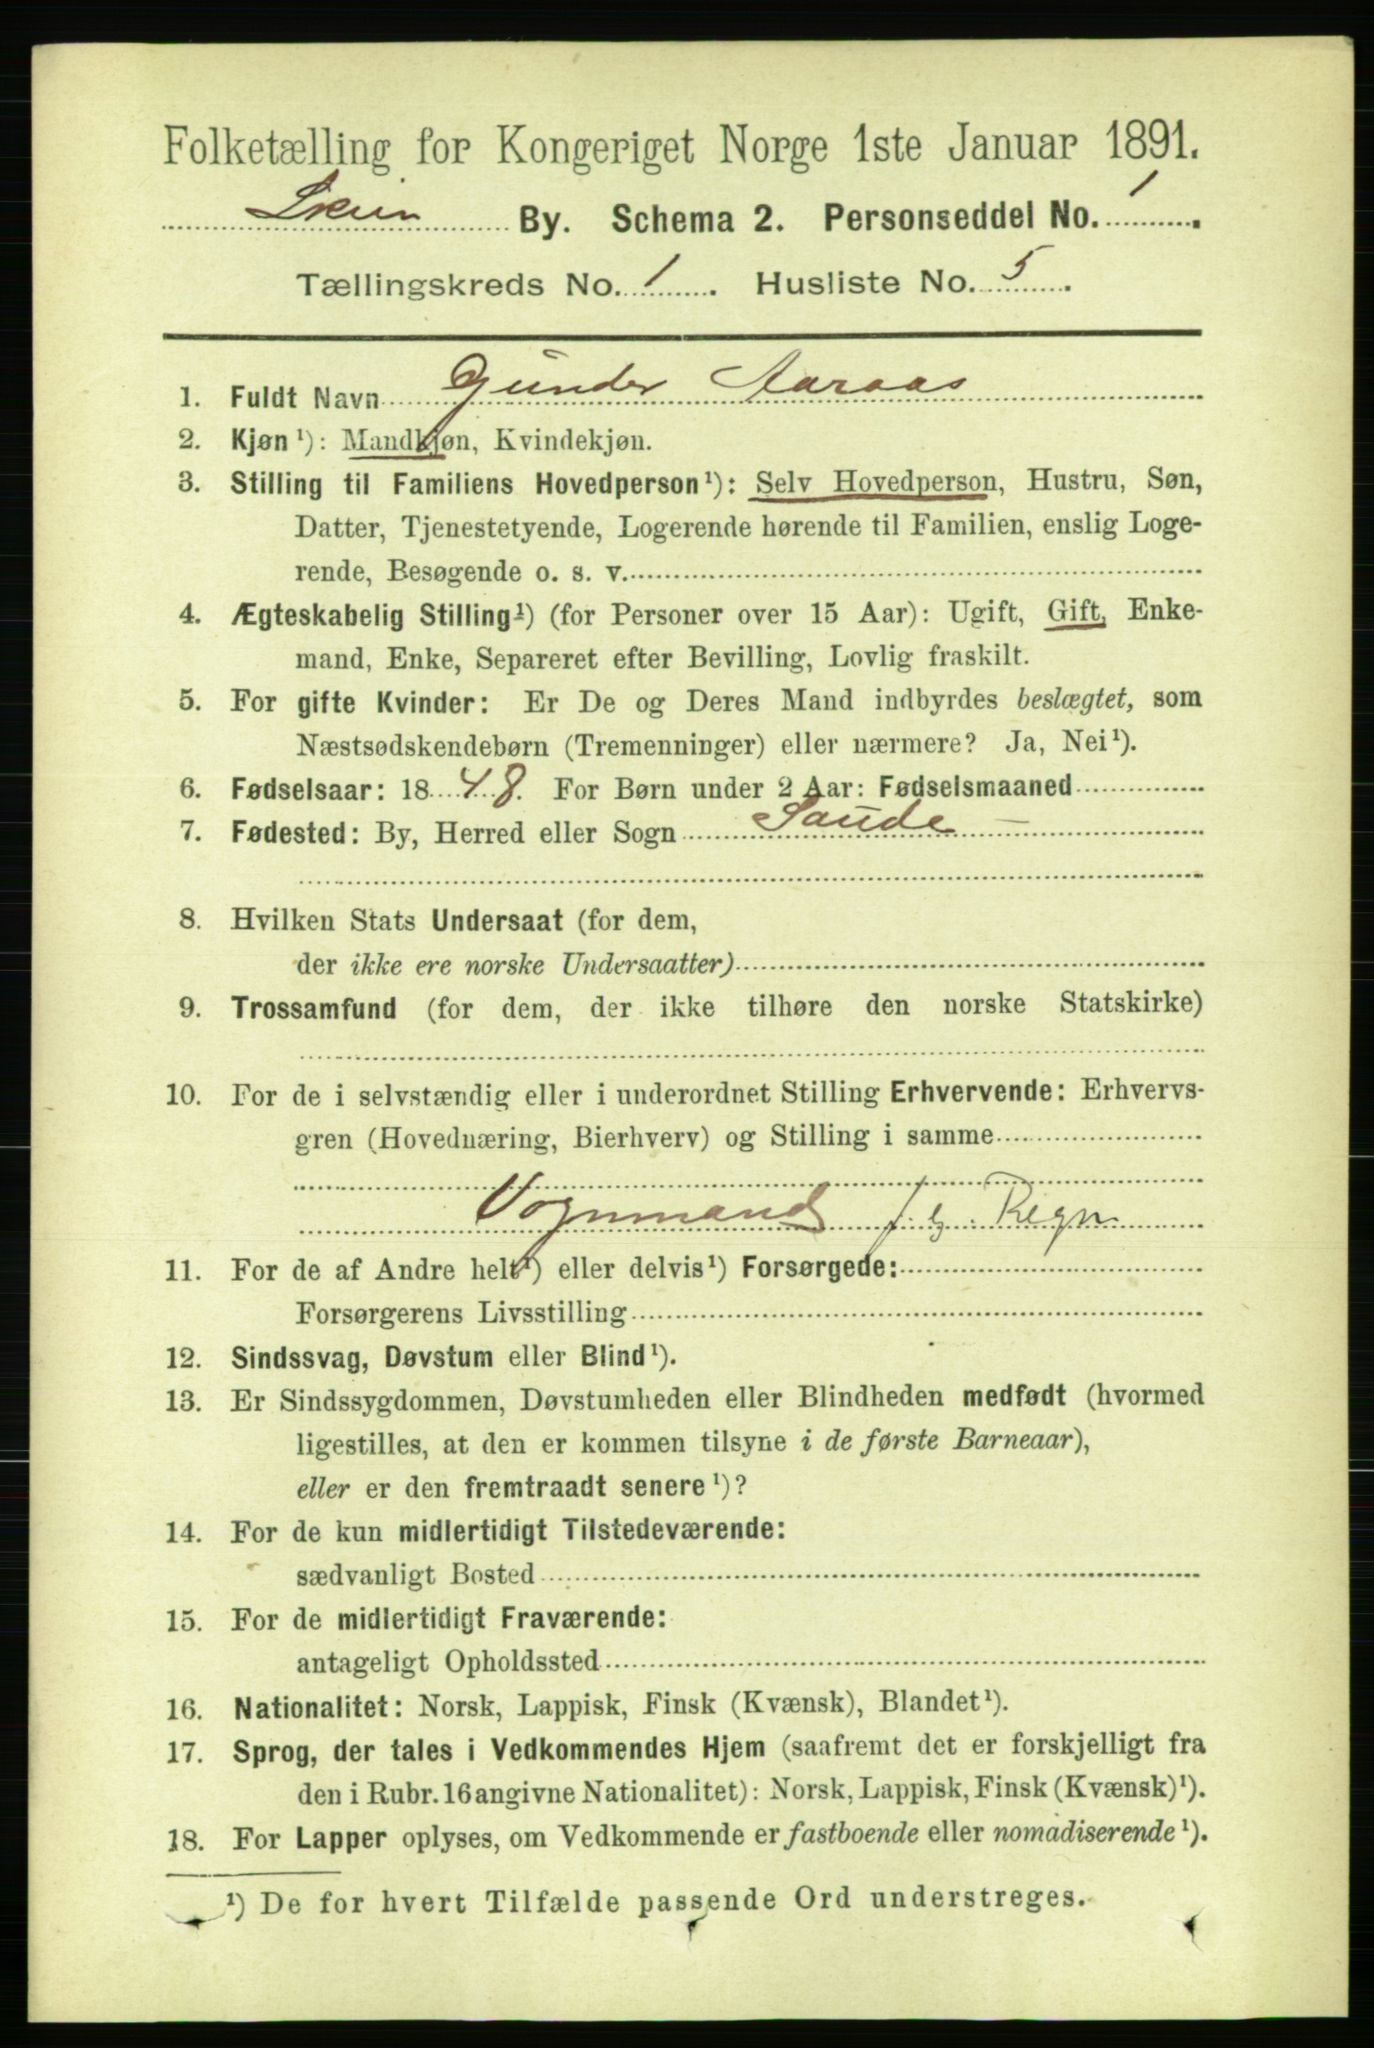 Folketælling for Kongeriget Norge 1ste Januar 1891.
Skien By. Schema 2. Personseddel No. 1.
Tællingskreds No. 1. Husliste No. 5.
1. Fuldt Navn Gunder Aaraas
2. Kjøn ¹): Mandkjøn, Kvindekjøn.
3. Stilling til Familiens Hovedperson¹): Selv Hovedperson, Hustru, Søn,
Datter, Tjenestetyende, Logerende hørende til Familien, enslig Loge-
rende, Besøgende o. s. v.
4. Ægteskabelig Stilling¹) (for Personer over 15 Aar): Ugift, Gift, Enke-
mand, Enke, Separeret efter Bevilling, Lovlig fraskilt.
5. For gifte Kvinder: Er De og Deres Mand indbyrdes beslægtet, som
Næstsødskendebørn (Tremenninger) eller nærmere? Ja, Nei¹).
6. Fødselsaar: 1848. For Børn under 2 Aar: Fødselsmaaned
7. Fødested: By, Herred eller Sogn Saude –
8. Hvilken Stats Undersaat (for dem,
der ikke ere norske Undersaatter)
9. Trossamfund (for dem, der ikke tilhøre den norske Statskirke)
10. For de i selvstændig eller i underordnet Stilling Erhvervende: Erhvervs-
gren (Hovednæring, Bierhverv) og Stilling i samme
Vognmand f. eg. Regn.
11. For de af Andre helt¹) eller delvis¹) Forsørgede:
Forsørgerens Livsstilling
12. Sindssvag, Døvstum eller Blind¹).
13. Er Sindssygdommen, Døvstumheden eller Blindheden medfødt (hvormed
ligestilles, at den er kommen tilsyne i de første Barneaar),
eller er den fremtraadt senere ¹)?
14. For de kun midlertidigt Tilstedeværende:
sædvanligt Bosted
15. For de midlertidigt Fraværende:
antageligt Opholdssted
16. Nationalitet: Norsk, Lappisk, Finsk (Kvænsk), Blandet¹).
17. Sprog, der tales i Vedkommendes Hjem (saafremt det er forskjelligt fra
den i Rubr. 16 angivne Nationalitet): Norsk, Lappisk, Finsk (Kvænsk)¹).
18. For Lapper oplyses, om Vedkommende er fastboende eller nomadiserende ¹).
¹) De for hvert Tilfælde passende Ord understreges.